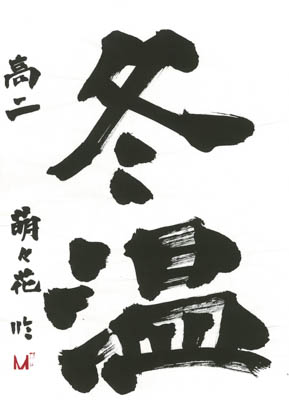 冬温
高二
萌々花